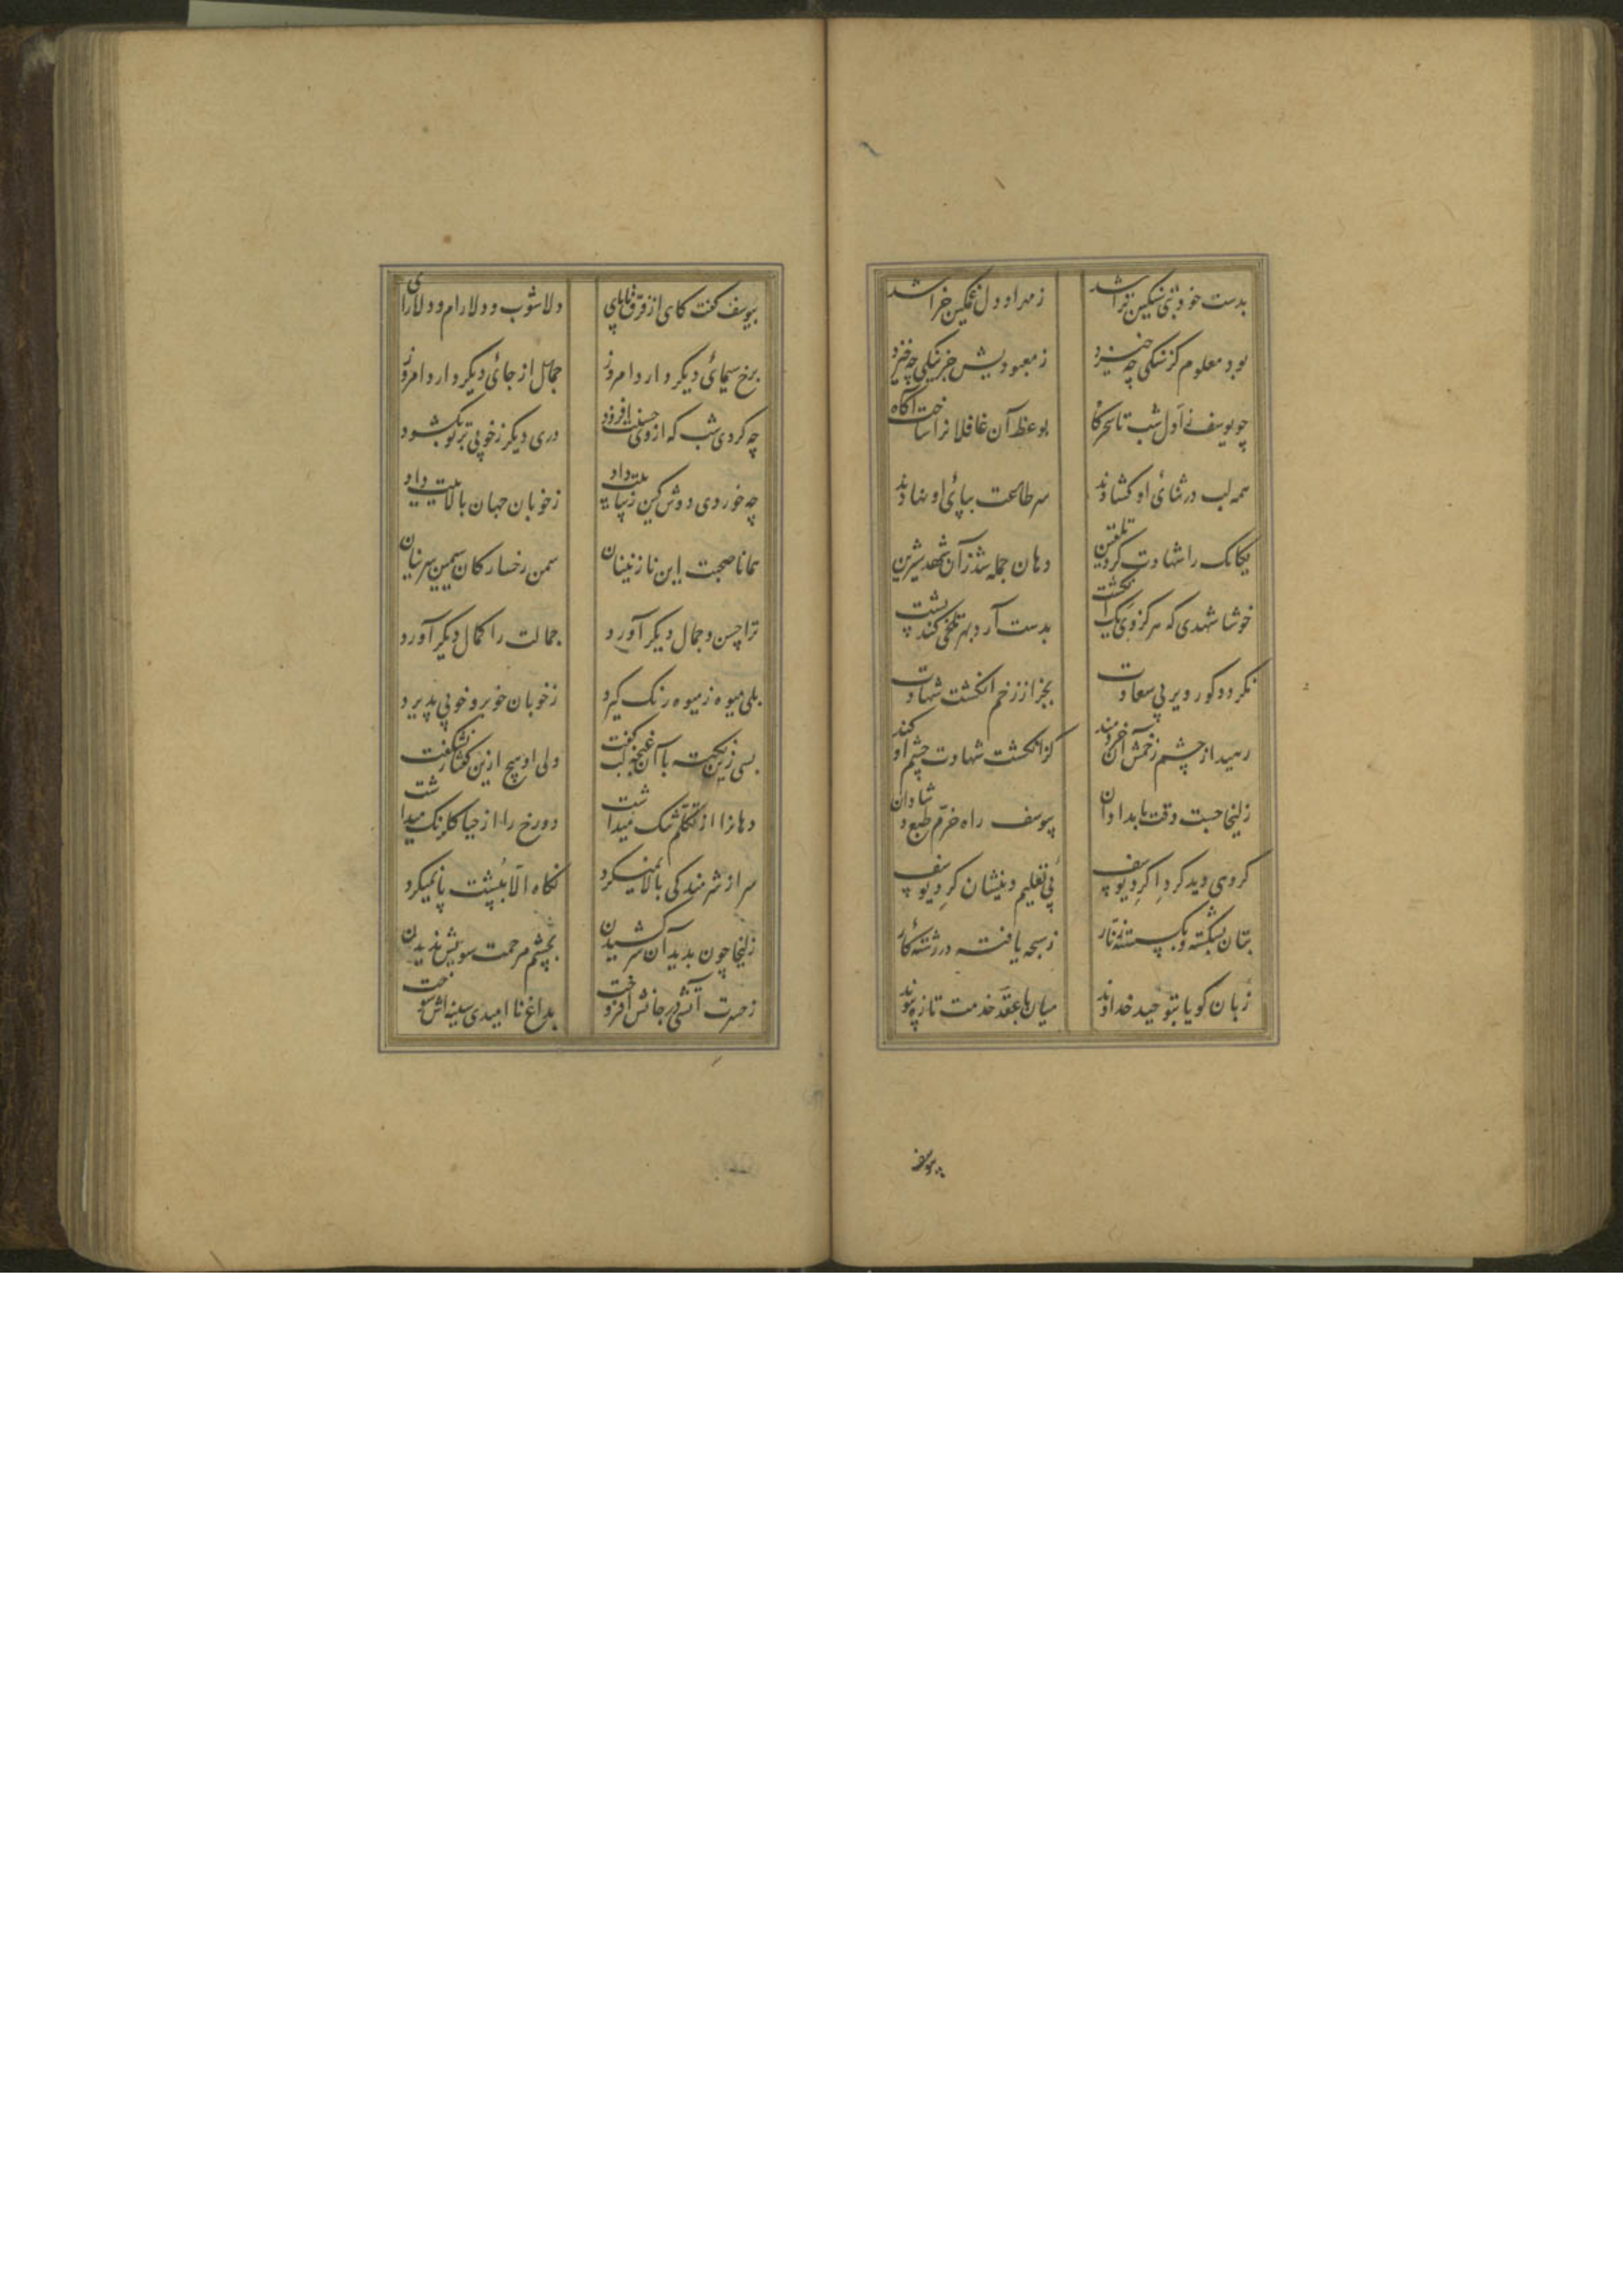 بدست خود بتی سنکین تراشد زمهر او دل غمکین خراشد
بود معلوم کز سنکی چه خیزد ز معبودیش جز ننکی چه خیزد
چو یوسف ز اول شب تا سحرکاه بوعظ آن غافلانرا ساخت آکاه
همه لب در ثنائ او کشادند سر طاعت بپائ او نهادند
یکایک را شهادت کرد تلقین دهان جمله شد زان شهد شیرین
خوشا شهدی که هرکز وی یک انکشت بدست آرد بهر تلخی کند پشت
نکردد کور دیر بی سعادت بجز از زخم انکشت شهادت
رهید از چشم زخمش آن خردمند کز انکشت شهادت چشم او کند
زلیخا جست وقت بامدادان بیوسف راه خرّم طبع و شادان
کروهی دید کرداکرد یوسف پی تعلیم دینشان کرد یوسف
بتان بشکسته و بکسسته زنّار ز سبحه یافته در رشتهٔ کار
زبان کویا بتوحید خداوند میان با عقد خدمت تازه پیوند
بیوسف
بیوسف کفت کای از فرق تا پای دلاشوب و دلارام و دلارای
برخ سیمائ دیکر دارد امروز جمال از جائ دیکر دارد امروز
چه کردی شب که از وی حسنت افزود دری دیکر ز خوبی بر تو بکشود
چه خوردی دوش کین زیباییت داد ز خوبان جهان بالاییت داد
همانا صحبت این نازنینان سمن رخسارکان سیمین سرینان
ترا حسن و جمال دیکر آورد جمالت را کمال دیکر آورد
بلی میوه ز میوه رنک کیرد ز خوبان خوبرو خوبی پذیرد
بسی زین نکته با آن غنچه لب کفت ولی او هیچ ازین کفتار نشکفت
دهانرا از تکلم تنک میداشت دو رخ را از حیا کلرنک میداشت
سر از شرمندکی بالا نمیکرد نکاه الّا بپشت پا نمیکرد
زلیخا چون بدید آن سر کشیدن بچشم مرحمت سویش ندیدن
ز حسرت آتشی در جانش افروخت بداغ ناامیدی سینه‌اش سوخت